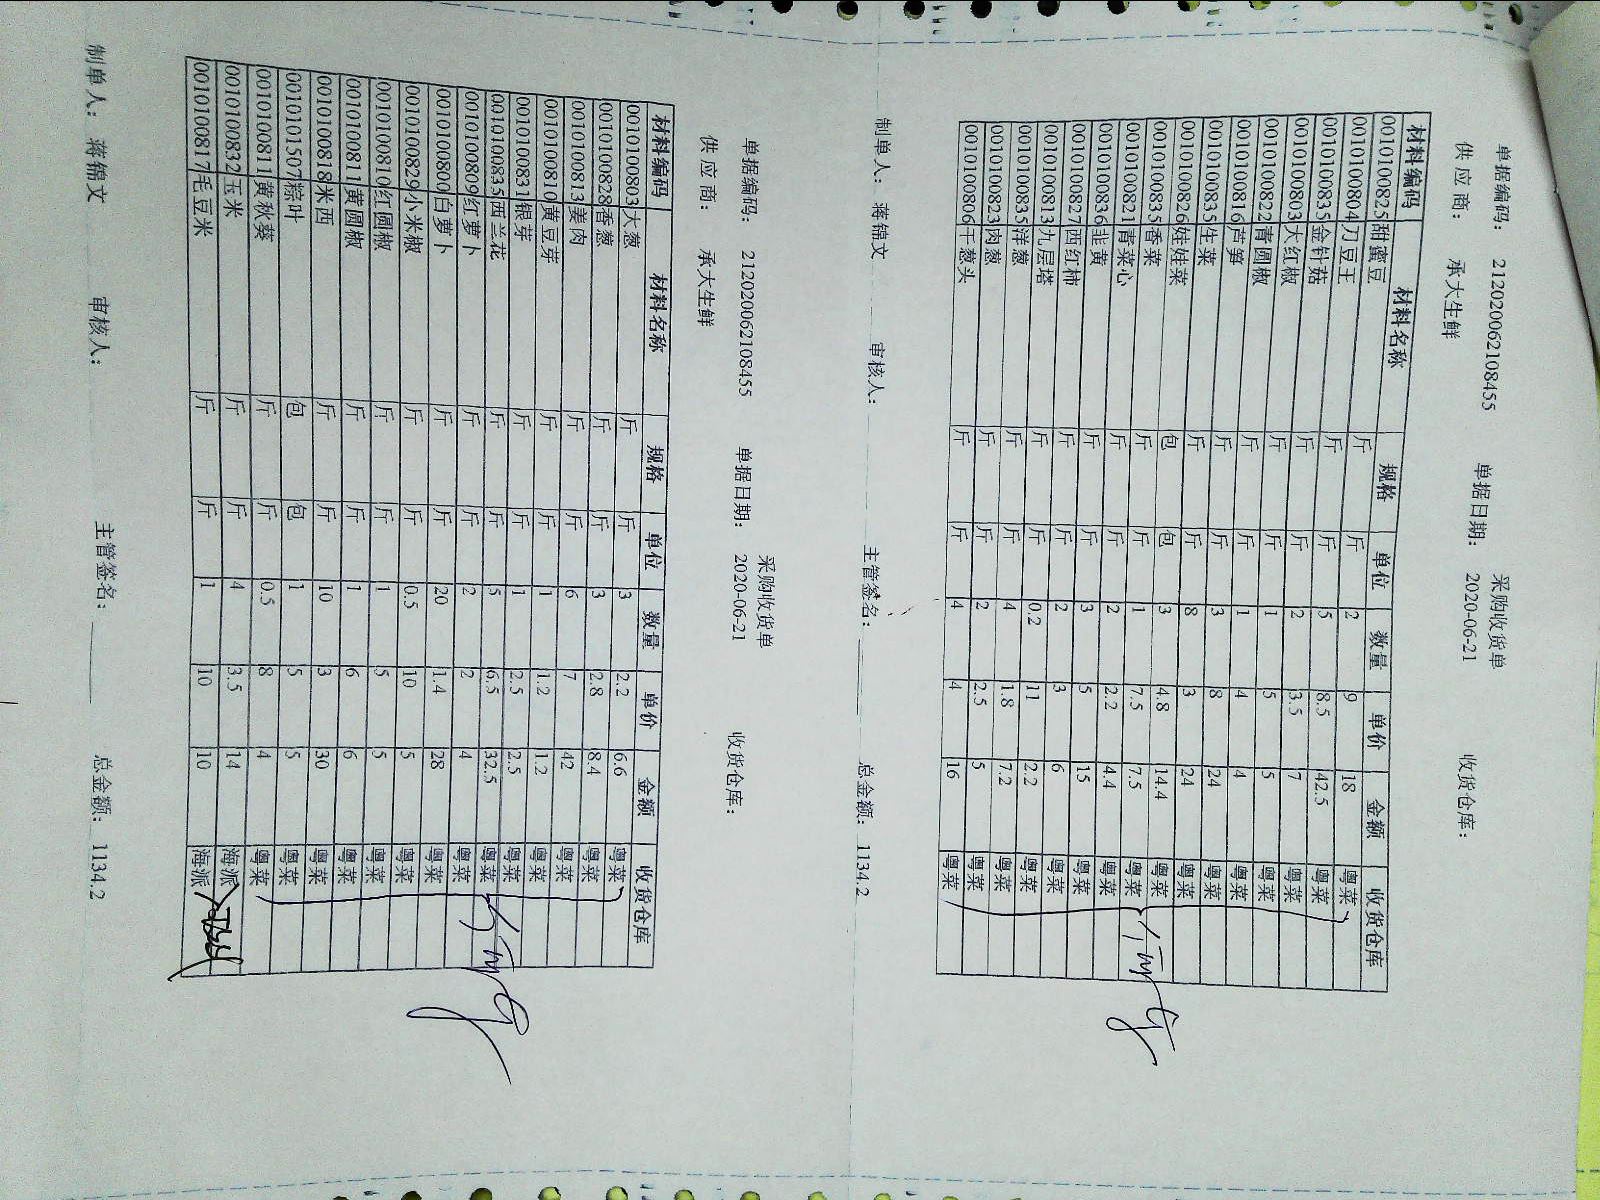 采购收货单
单据编码: 21202006210845​5 单据日期: 2020-06-21 收货仓库:
供 应 商: 承大生鲜
材料编码 材料名称 规格 单位 数量 单价 金额 收货仓库
0010100825 甜蜜豆 斤 斤 2 9 18 粤菜
0010100804 刀豆王 斤 斤 5 8.5 42.5 粤菜
0010100835 金针菇 斤 斤 2 3.5 7 粤菜
0010100803 大红椒 斤 斤 1 5 5 粤菜
0010100822 青圆椒 斤 斤 1 4 4 粤菜
0010100816 芦笋 斤 斤 3 8 24 粤菜
0010100835 生菜 斤 斤 8 3 24 粤菜
0010100826 娃娃菜 包 包 3 4.8 14.4 粤菜
0010100835 香菜 斤 斤 1 7.5 7.5 粤菜
0010100821 青菜心 斤 斤 2 2.2 4.4 粤菜
0010100826 韭黄 斤 斤 3 5 15 粤菜
0010100827 西红柿 斤 斤 2 3 6 粤菜
0010100813 九层塔 斤 斤 0.2 11 2.2 粤菜
0010100835 洋葱 斤 斤 4 1.8 7.2 粤菜
0010100823 肉葱 斤 斤 2 2.5 5 粤菜
0010100806 干葱头 斤 斤 4 4 16 粤菜
制单人: 蒋锦文 审核人: 主管签名: 总金额: 1134.2
采购收货单
单据编码: 212020062108455 单据日期: 2020-06-21 收货仓库:
供 应 商: 承大生鲜
材料编码 材料名称 规格 单位 数量 单价 金额 收货仓库
0010100803 大葱 斤 斤 3 2.2 6.6 粤菜
0010100828 香葱 斤 斤 3 2.8 8.4 粤菜
0010100813 姜肉 斤 斤 6 7 42 粤菜
0010100810 黄豆芽 斤 斤 1 1.2 1.2 粤菜
0010100831 银芽 斤 斤 1 2.5 2.5 粤菜
0010100835 西兰花 斤 斤 5 6.5 32.5 粤菜
0010100809 红萝卜 斤 斤 2 2 4 粤菜
0010100800 白萝卜 斤 斤 20 1.4 28 粤菜
0010100829 小米椒 斤 斤 0.5 10 5 粤菜
0010100810 红圆椒 斤 斤 1 5 5 粤菜
0010100811 黄圆椒 斤 斤 1 6 6 粤菜
0010100818 米西 斤 斤 10 3 30 粤菜
0010101507 粽叶 包 包 1 5 5 粤菜
0010100811 黄秋葵 斤 斤 0.5 8 4 粤菜
0010100832 玉米 斤 斤 4 3.5 14 海派
0010100817 毛豆米 斤 斤 1 10 10 海派
制单人: 蒋锦文 审核人: 主管签名: 总金额: 1134.2